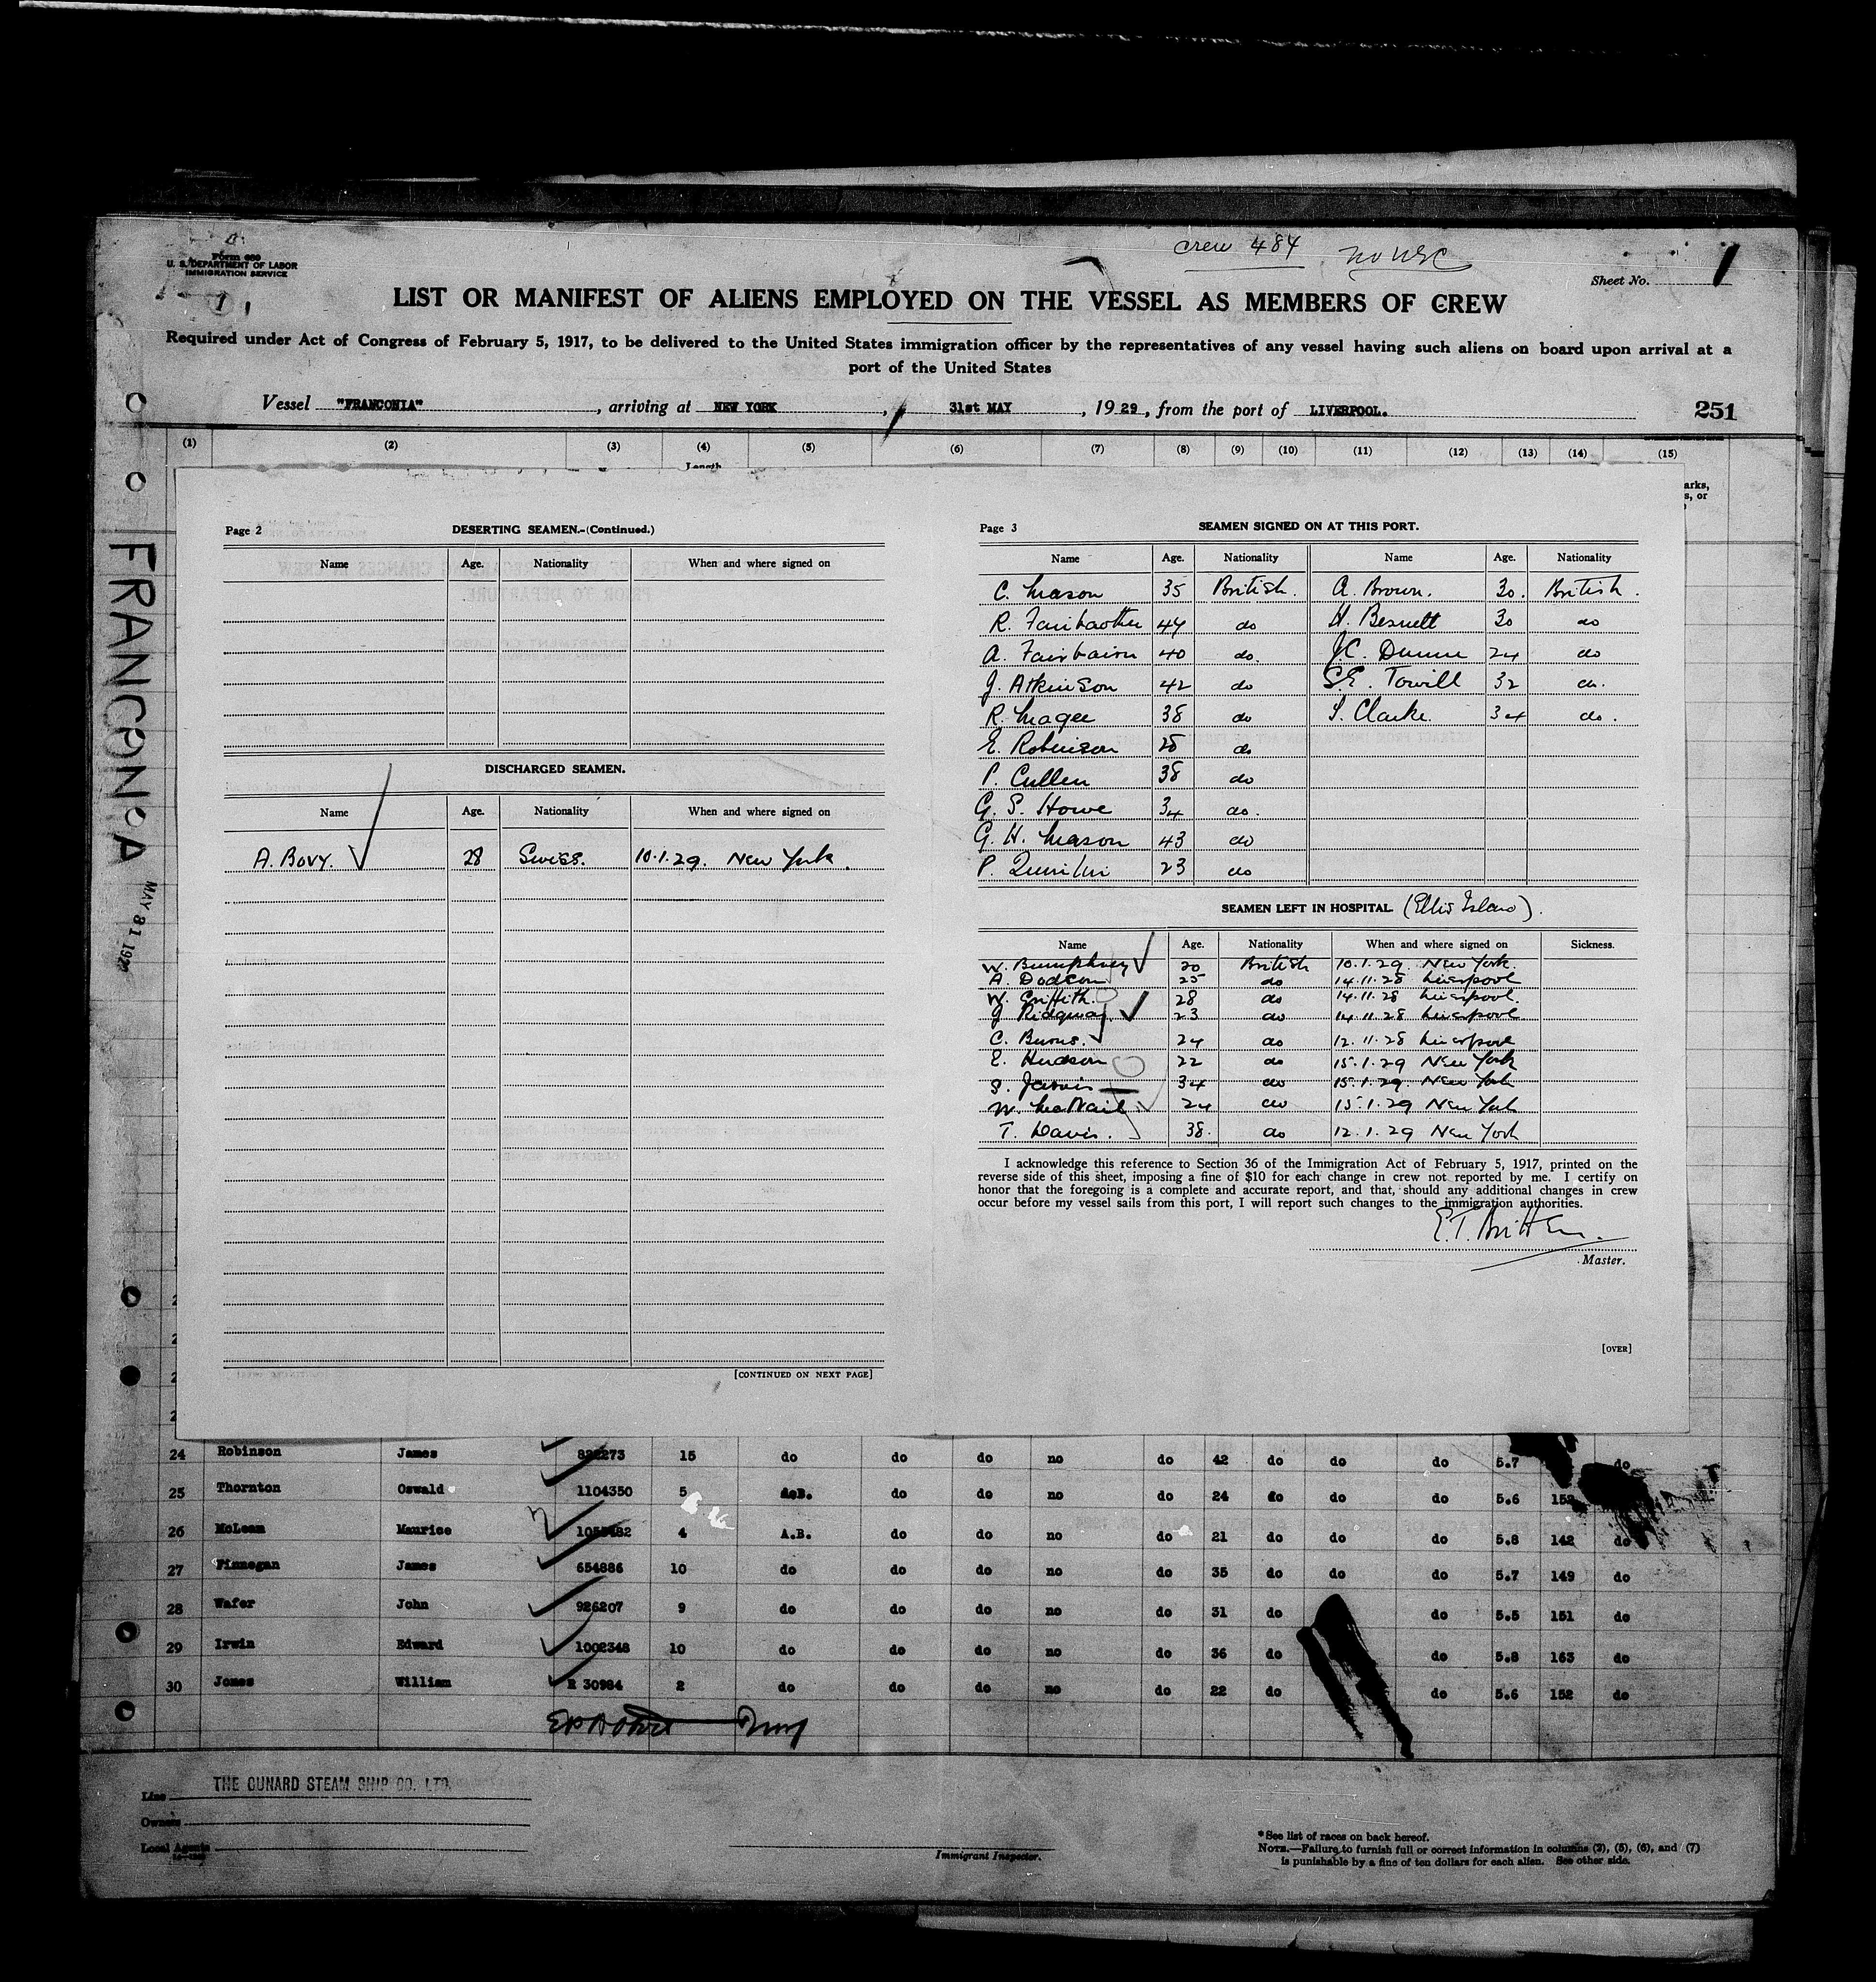 Form 680
U. S. DEPARTMENT OF LABOR
IMMIGRATION SERVICE
crew 484
Sheet No. 1
LIST OR MANIFEST OF ALIENS EMPLOYED ON THE VESSEL AS MEMBERS OF CREW
Required under Act of Congress of February 5, 1917, to be delivered to the United States immigration officer by the representatives of any vessel having such aliens on board upon arrival at a
port of the United States
Vessel "FRANCONIA", arriving at NEW YORK, 31st MAY, 1929, from the port of LIVERPOOL.
251
(1) (2) (3) (4) (5) (6) (7) (8) (9) (10) (11) (12) (13) (14) (15)
Length
arks,
s, or
FRANCONIA
MAY 31 192
Page 2 DESERTING SEAMEN.-(Continued.)
Name Age. Nationality When and where signed on
DISCHARGED SEAMEN.
Name Age. Nationality When and where signed on
A. Bovy. 28 Swiss. 10.1.29. New York.
[CONTINUED ON NEXT PAGE]
Page 3 SEAMEN SIGNED ON AT THIS PORT.
Name Age. Nationality Name Age. Nationality
C. Mason 35 British. A. Brown. 30. British.
R. 44 do H. Bennett 30 do
A. Fairbairn 40 do. J.C. Dunne 24 do
J. Atkinson 42 do S.E. Towill 32 do.
R. Magee 38 do S. Clarke. 34 do.
E. Robinson do
P. Cullen 38 do
G. S. Howe 34 do.
G. H. Mason 43 do
P. 23 do
SEAMEN LEFT IN HOSPITAL (Ellis Island).
Name Age. Nationality When and where signed on Sickness.
W. Bumphrey 20 British 10.1.29. New York.
A. Dodson 25 do 14.11.28 Liverpool
W. Griffith. 28 do 14.11.28 Liverpool.
J. Ridgway. 23 do 14.11.28 Liverpool
C. Burns. 24 do 12.11.28 Liverpool
E. Hudson 22 do 15.1.29 New York
S. Jarvis 34 do 15.1.29. New York
W. McNail. 24 do 15.1.29 New York
T. Davis. 38. do 12.1.29 New York
I acknowledge this reference to Section 36 of the Immigration Act of February 5, 1917, printed on the
reverse side of this sheet, imposing a fine of $10 for each change in crew not reported by me. I certify on
honor that the foregoing is a complete and accurate report, and that, should any additional changes in crew
occur before my vessel sails from this port, I will report such changes to the immigration authorities.
E.T. Britten.
Master.
[OVER]
24 Robinson James 15 do do do no do 42 do do do 5.7 do
25 Thornton Oswald 1104350 5 A.B. do do no do 24 do do do 5.6 152
26 McLean Maurice 4 A.B. do do no do 21 do do do 5.8 142 do
27 Finnegan James 654886 10 do do do no do 35 do do do 5.7 149 do
28 Wafer John 926207 9 do do do no do 31 do do 5.5 151 do
29 Irwin Edward 1002348 10 do do do no do 36 do do 5.8 163 do
30 Jones William R 30984 2 do do do no do 22 do do 5.6 152 do
Line THE CUNARD STEAM SHIP CO. LTD.
Owners
Local Agents
Immigrant Inspector.
*See list of races on back hereof.
NOTE.—Failure to furnish full or correct information in columns (3), (5), (6), and (7)
is punishable by a fine of ten dollars for each alien. See other side.